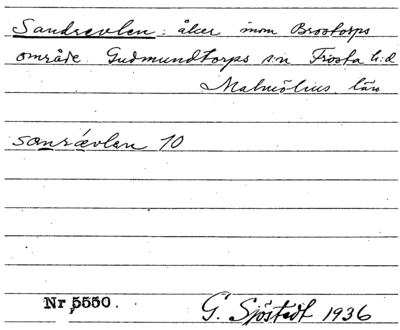 Sandrevlen: åker inom Brostorps
område. Gudmundtorps s:n Frosta h:d
Malmöhus län
sanrǽvlan 10
Nr 5550.
G. Sjöstedt 1936